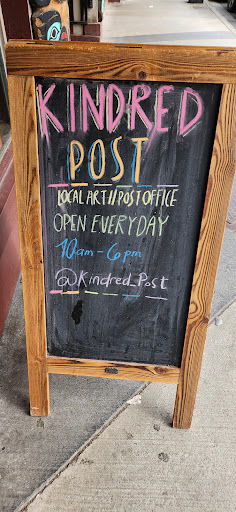 KINDRED
POST
LOCAL ART//POST OFFICE
OPEN EVERYDAY
10am-6pm
@Kindred_Post